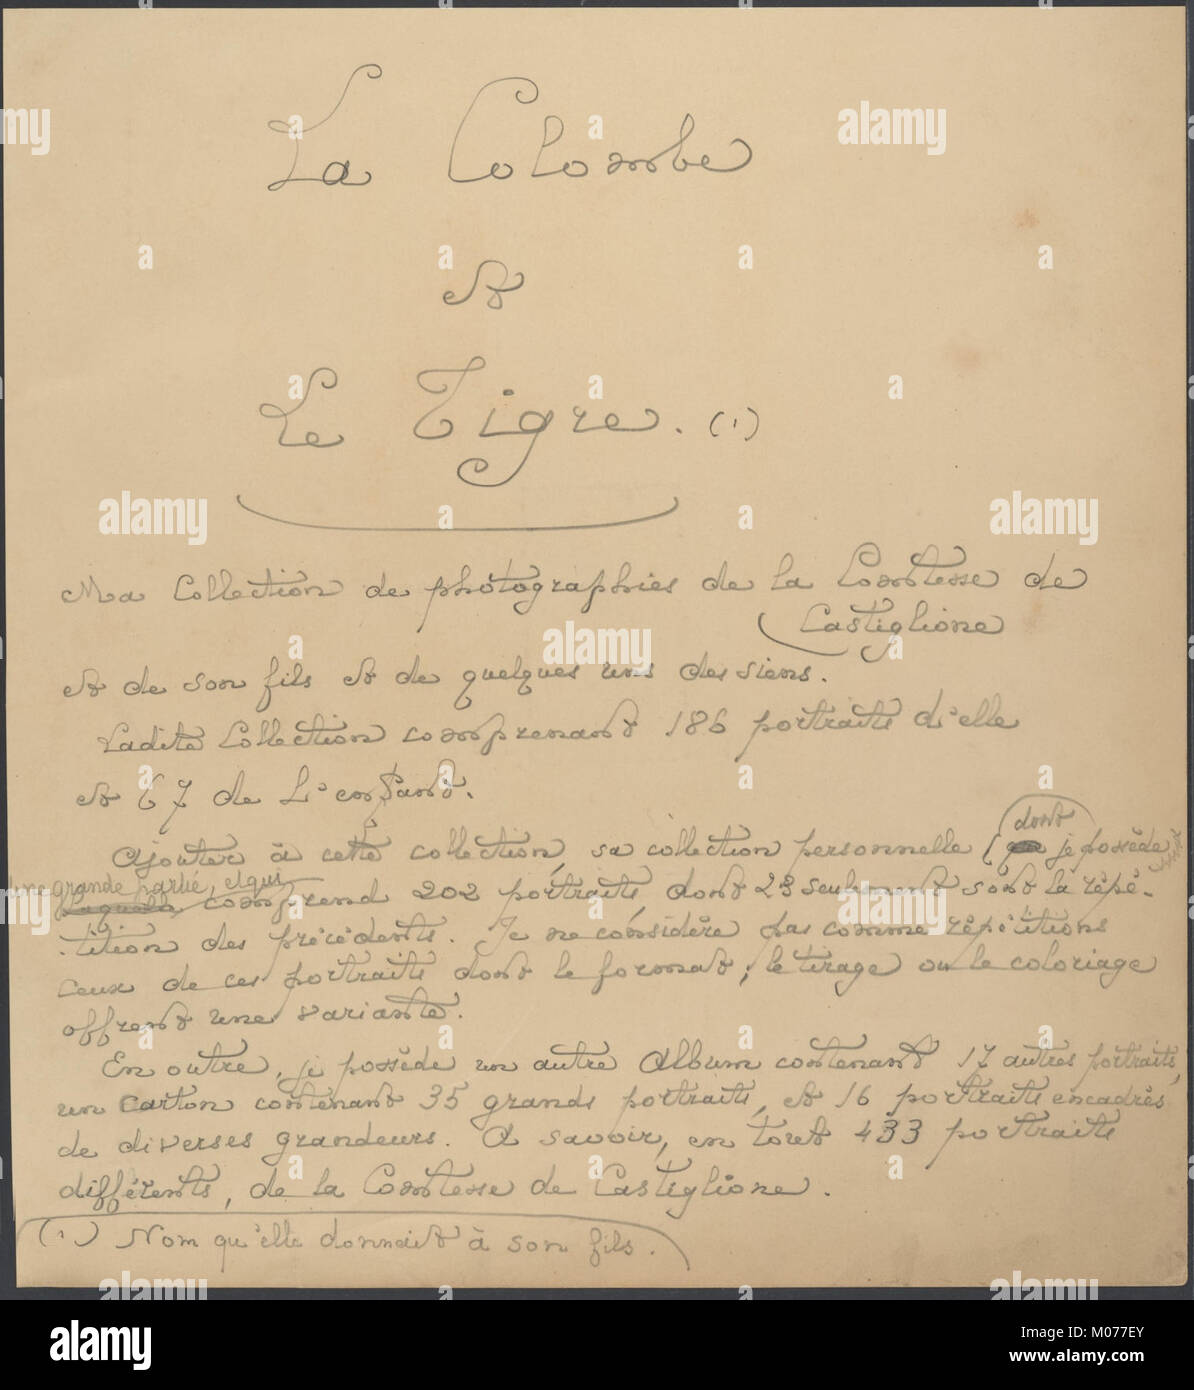 La Colombe
et
Le Tigre. (1)
Ma Collection de photographies de la Comtesse de
Castiglione
et de son fils et de quelques uns des siens.
Ladite Collection comprenant 186 portraits d'elle
et 67 de L'enfant.
Ajouter à cette collection, sa collection personnelle (dont je possède
une grande partie, et qui comprend 202 portraits, dont 23 seulement sont la répé-
-tition des précédents. Je ne considère pas comme répétitions
ceux de ces portraits dont le format, le tirage ou le coloriage
offrent une variante.
En outre, je possède un autre Album contenant 17 autres portraits,
un carton contenant 35 grands portraits, et 16 portraits encadrés
de diverses grandeurs. A savoir, en tout 433 portraits
différents, de la Comtesse de Castiglione.
(1) Nom qu'elle donnait à son fils.
alamy
Image ID: M077EY
www.alamy.com